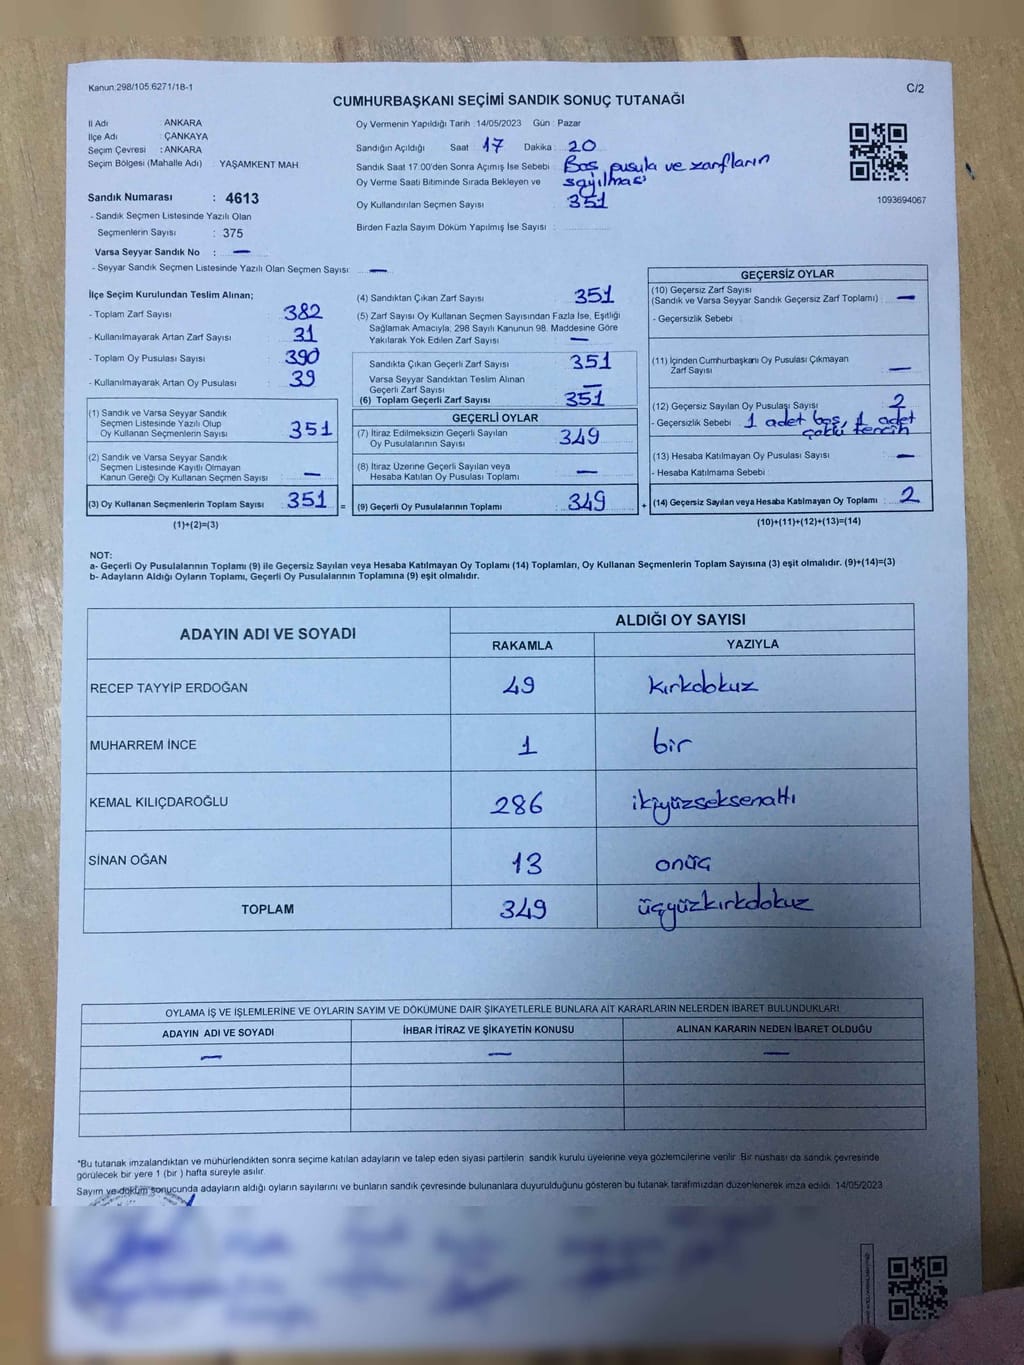 Kanun:298/105.6271/18-1
C/2
CUMHURBAŞKANI SEÇİMİ SANDIK SONUÇ TUTANAĞI
İl Adı ANKARA
İlçe Adı : ÇANKAYA
Seçim Çevresi : ANKARA
Seçim Bölgesi (Mahalle Adı) : YAŞAMKENT MAH
Sandık Numarası : 4613
- Sandık Seçmen Listesinde Yazılı Olan
Seçmenlerin Sayısı : 375
Varsa Seyyar Sandık No : —
- Seyyar Sandık Seçmen Listesinde Yazılı Olan Seçmen Sayısı: —
Oy Vermenin Yapıldığı Tarih : 14/05/2023 Gün : Pazar
Sandığın Açıldığı Saat 17 Dakika : 20
Sandık Saat 17:00'den Sonra Açımış İse Sebebi : Boş pusula ve zarfların
Oy Verme Saati Bitiminde Sırada Bekleyen ve sayılması
Oy Kullandırılan Seçmen Sayısı 351
Birden Fazla Sayım Döküm Yapılmış İse Sayısı :
1093694067
İlçe Seçim Kurulundan Teslim Alınan;
- Toplam Zarf Sayısı 382
- Kullanılmayarak Artan Zarf Sayısı 31
- Toplam Oy Pusulası Sayısı 390
- Kullanılmayarak Artan Oy Pusulası 39
(1) Sandık ve Varsa Seyyar Sandık
Seçmen Listesinde Yazılı Olup
Oy Kullanan Seçmenlerin Sayısı 351
(2) Sandık ve Varsa Seyyar Sandık
Seçmen Listesinde Kayıtlı Olmayan
Kanun Gereği Oy Kullanan Seçmen Sayısı —
(3) Oy Kullanan Seçmenlerin Toplam Sayısı 351 =
(1)+(2)=(3)
(4) Sandıktan Çıkan Zarf Sayısı 351
(5) Zarf Sayısı Oy Kullanan Seçmen Sayısından Fazla İse, Eşitliği
Sağlamak Amacıyla; 298 Sayılı Kanunun 98. Maddesine Göre
Yakılarak Yok Edilen Zarf Sayısı —
Sandıkta Çıkan Geçerli Zarf Sayısı 351
Varsa Seyyar Sandıktan Teslim Alınan
Geçerli Zarf Sayısı —
(6) Toplam Geçerli Zarf Sayısı 351
GEÇERLİ OYLAR
(7) İtiraz Edilmeksizin Geçerli Sayılan
Oy Pusulalarının Sayısı 349
(8) İtiraz Üzerine Geçerli Sayılan veya
Hesaba Katılan Oy Pusulası Toplamı —
(9) Geçerli Oy Pusulalarının Toplamı : 349 +
GEÇERSİZ OYLAR
(10) Geçersiz Zarf Sayısı
(Sandık ve Varsa Seyyar Sandık Geçersiz Zarf Toplamı) : —
- Geçersizlik Sebebi :
(11) İçinden Cumhurbaşkanı Oy Pusulası Çıkmayan
Zarf Sayısı —
(12) Geçersiz Sayılan Oy Pusulası Sayısı 2
- Geçersizlik Sebebi : 1 adet boş, 1 adet
çoklu tercih
(13) Hesaba Katılmayan Oy Pusulası Sayısı —
- Hesaba Katılmama Sebebi
(14) Geçersiz Sayılan veya Hesaba Katılmayan Oy Toplamı : 2
(10)+(11)+(12)+(13)=(14)
NOT:
a- Geçerli Oy Pusulalarının Toplamı (9) ile Geçersiz Sayılan veya Hesaba Katılmayan Oy Toplamı (14) Toplamları, Oy Kullanan Seçmenlerin Toplam Sayısına (3) eşit olmalıdır. (9)+(14)=(3)
b- Adayların Aldığı Oyların Toplamı, Geçerli Oy Pusulalarının Toplamına (9) eşit olmalıdır.
ADAYIN ADI VE SOYADI
ALDIĞI OY SAYISI
RAKAMLA YAZIYLA
RECEP TAYYİP ERDOĞAN 49 kırkdokuz
MUHARREM İNCE 1 bir
KEMAL KILIÇDAROĞLU 286 ikiyüzseksenaltı
SİNAN OĞAN 13 onüç
TOPLAM 349 üçyüzkırkdokuz
OYLAMA İŞ VE İŞLEMLERİNE VE OYLARIN SAYIM VE DÖKÜMÜNE DAİR ŞİKAYETLERLE BUNLARA AİT KARARLARIN NELERDEN İBARET BULUNDUKLARI
ADAYIN ADI VE SOYADI İHBAR İTİRAZ VE ŞİKAYETİN KONUSU ALINAN KARARIN NEDEN İBARET OLDUĞU
— — —
*Bu tutanak imzalandıktan ve mühürlendikten sonra seçime katılan adayların ve talep eden siyasi partilerin sandık kurulu üyelerine veya gözlemcilerine verilir. Bir nüshası da sandık çevresinde
görülecek bir yere 1 (bir ) hafta süreyle asılır.
Sayım ve döküm sonucunda adayların aldığı oyların sayılarını ve bunların sandık çevresinde bulunanlara duyurulduğunu gösteren bu tutanak tarafımızdan düzenlenerek imza edildi. 14/05/2023